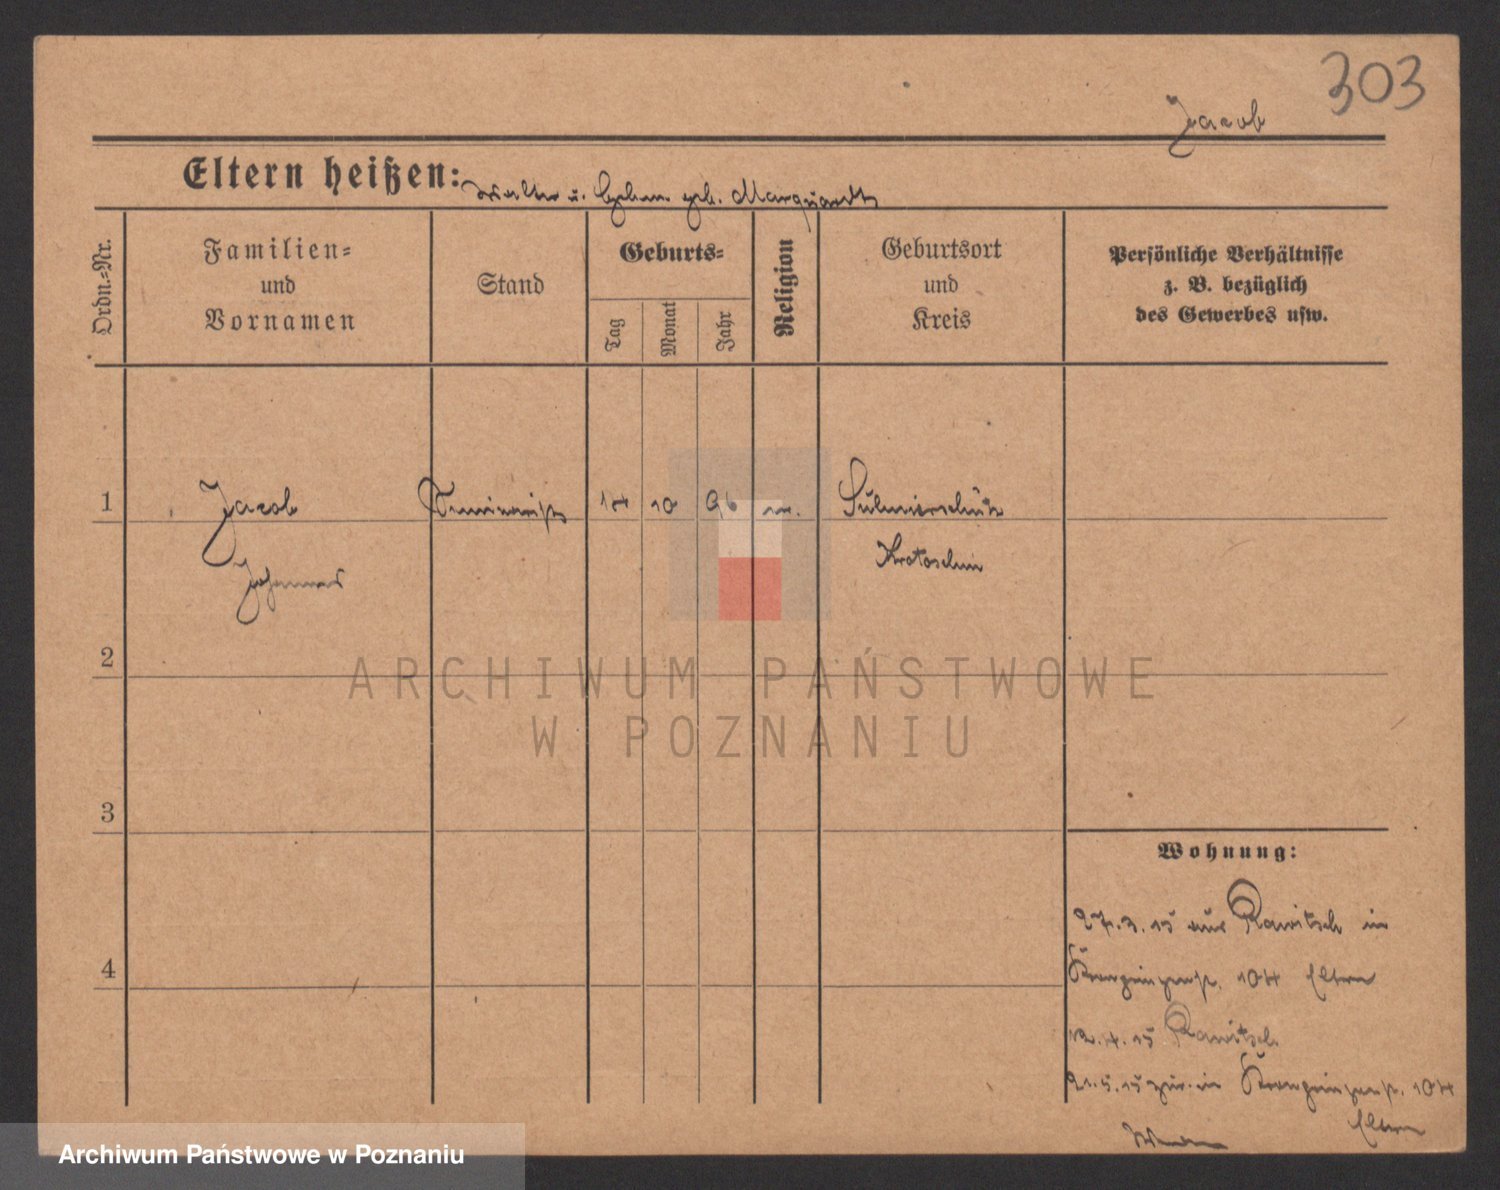 303
Jacob
Eltern heißen: Walter u. geb. Marquardt
Ordn.-Nr.
Familien-
und
Vornamen
Stand
Geburts-
Tag
Monat
Jahr
Religion
Geburtsort
und
Kreis
Persönliche Verhältnisse
z. B. bezüglich
des Gewerbes usw.
1
Jacob
Seminarist
10
96
Sulmierschütz
Johannes
Krotoschin
2
ARCHIWUM PAŃSTWOWE
W POZNANIU
3
Wohnung:
27.3.15 aus Rawitsch in
4
Kronprinzenstr. 104 Eltern
12.4.15 Rawitsch
21.5.15 zur. in Kronprinzenstr. 104
Eltern
Archiwum Państwowe w Poznaniu